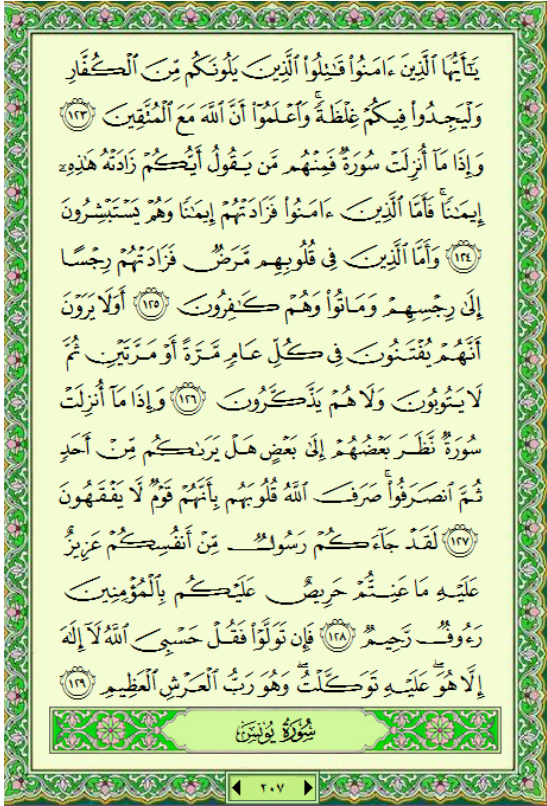 يَـٰٓأَيُّهَا ٱلَّذِينَ ءَامَنُوا۟ قَـٰتِلُوا۟ ٱلَّذِينَ يَلُونَكُم مِّنَ ٱلْكُفَّارِ
وَلْيَجِدُوا۟ فِيكُمْ غِلْظَةً ۚ وَٱعْلَمُوٓا۟ أَنَّ ٱللَّهَ مَعَ ٱلْمُتَّقِينَ ١٢٣
وَإِذَا مَآ أُنزِلَتْ سُورَةٌ فَمِنْهُم مَّن يَقُولُ أَيُّكُمْ زَادَتْهُ هَـٰذِهِۦٓ
إِيمَـٰنًا ۚ فَأَمَّا ٱلَّذِينَ ءَامَنُوا۟ فَزَادَتْهُمْ إِيمَـٰنًا وَهُمْ يَسْتَبْشِرُونَ
١٢٤ وَأَمَّا ٱلَّذِينَ فِى قُلُوبِهِم مَّرَضٌ فَزَادَتْهُمْ رِجْسًا
إِلَىٰ رِجْسِهِمْ وَمَاتُوا۟ وَهُمْ كَـٰفِرُونَ ١٢٥ أَوَلَا يَرَوْنَ
أَنَّهُمْ يُفْتَنُونَ فِى كُلِّ عَامٍ مَّرَّةً أَوْ مَرَّتَيْنِ ثُمَّ
لَا يَتُوبُونَ وَلَا هُمْ يَذَّكَّرُونَ ١٢٦ وَإِذَا مَآ أُنزِلَتْ
سُورَةٌ نَّظَرَ بَعْضُهُمْ إِلَىٰ بَعْضٍ هَلْ يَرَىٰكُم مِّنْ أَحَدٍ
ثُمَّ ٱنصَرَفُوا۟ ۚ صَرَفَ ٱللَّهُ قُلُوبَهُم بِأَنَّهُمْ قَوْمٌ لَّا يَفْقَهُونَ
١٢٧ لَقَدْ جَآءَكُمْ رَسُولٌ مِّنْ أَنفُسِكُمْ عَزِيزٌ
عَلَيْهِ مَا عَنِتُّمْ حَرِيصٌ عَلَيْكُم بِٱلْمُؤْمِنِينَ
رَءُوفٌ رَّحِيمٌ ١٢٨ فَإِن تَوَلَّوْا۟ فَقُلْ حَسْبِىَ ٱللَّهُ لَآ إِلَـٰهَ
إِلَّا هُوَ ۖ عَلَيْهِ تَوَكَّلْتُ ۖ وَهُوَ رَبُّ ٱلْعَرْشِ ٱلْعَظِيمِ ١٢٩
سُورَةُ يُونُسَ
٢٠٧